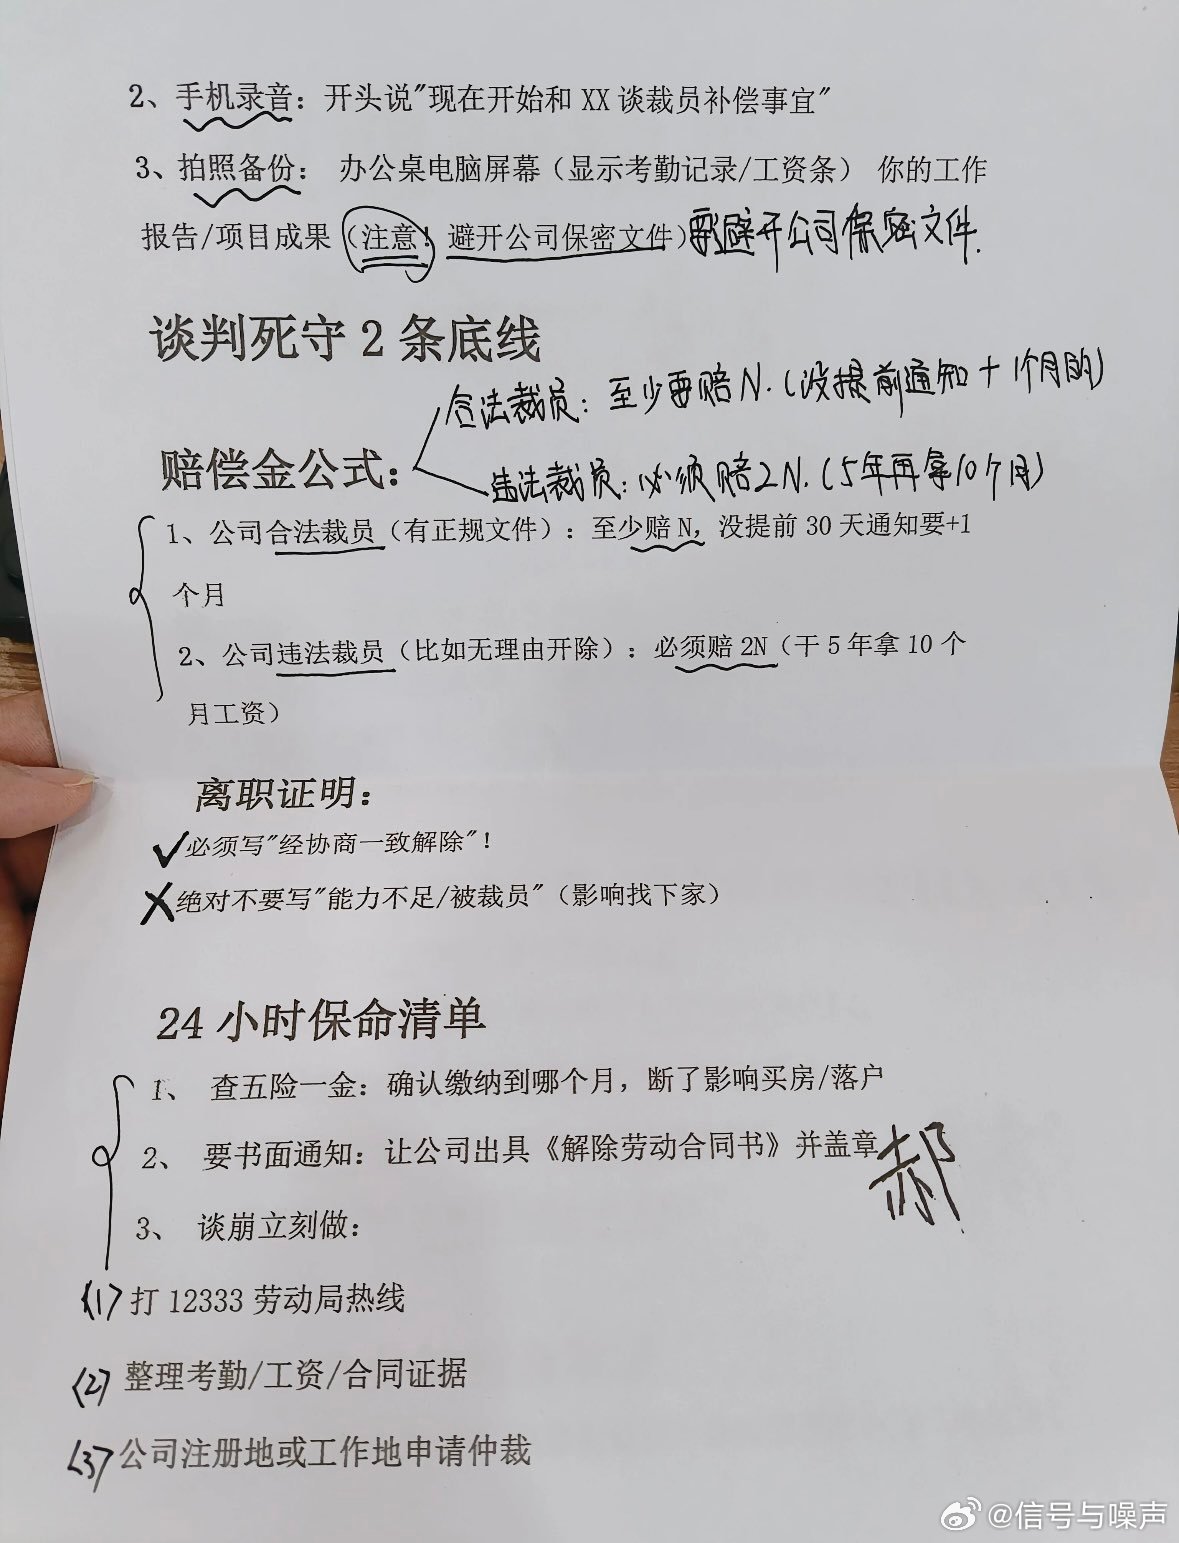 2、手机录音：开头说"现在开始和 XX 谈裁员补偿事宜"
3、拍照备份： 办公桌电脑屏幕（显示考勤记录/工资条） 你的工作
报告/项目成果（注意！避开公司保密文件）要避开公司保密文件.
谈判死守 2 条底线
合法裁员：至少要赔N.（没提前通知+1个月的）
赔偿金公式：
违法裁员：必须赔2N.（5年再拿10个月）
1、公司合法裁员（有正规文件）：至少赔 N，没提前 30 天通知要+1
个月
2、公司违法裁员（比如无理由开除）：必须赔 2N（干 5 年拿 10 个
月工资）
离职证明：
✓必须写"经协商一致解除"！
✗绝对不要写"能力不足/被裁员"（影响找下家）
24 小时保命清单
1、 查五险一金：确认缴纳到哪个月，断了影响买房/落户
2、 要书面通知：让公司出具《解除劳动合同书》并盖章
郝
3、 谈崩立刻做：
(1) 打 12333 劳动局热线
(2) 整理考勤/工资/合同证据
(3) 公司注册地或工作地申请仲裁
@信号与噪声